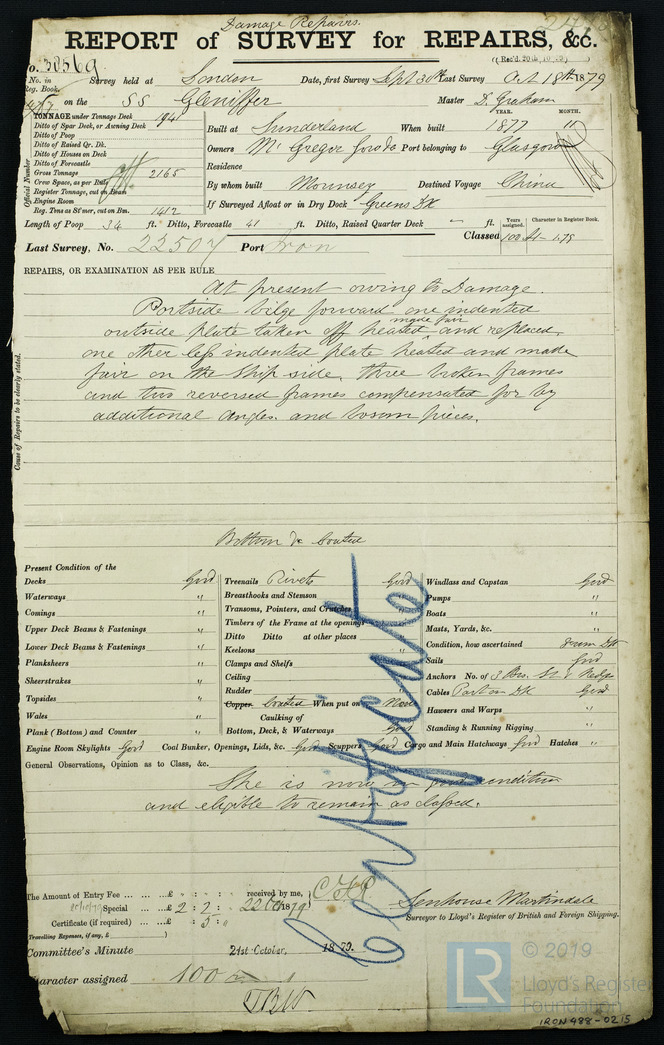 Damage Repairs.
REPORT of SURVEY for REPAIRS, &c.
No. 30569
No. in Reg. Book. Survey held at London Date, first Survey Sept 30th Last Survey Oct 18th 1879
on the SS Gleniffer Master D. Graham
TONNAGE under Tonnage Deck 1941
Ditto of Spar Deck, or Awning Deck
Ditto of Poop
Ditto of Raised Qr. Dk.
Ditto of Houses on Deck
Ditto of Forecastle
Gross Tonnage 2165
Crew Space, as per Rule
Register Tonnage, cut on Beam
Engine Room
Reg. Tons as St'mer, cut on Bm. 1412
Official Number
YEAR. MONTH.
Built at Sunderland When built 1877 11
Owners McGregor Gow & Co Port belonging to Glasgow
Residence
By whom built Mounsey Destined Voyage China
If Surveyed Afloat or in Dry Dock Greens DK
Length of Poop 34 ft. Ditto, Forecastle 41 ft. Ditto, Raised Quarter Deck " ft.
Years assigned. Character in Register Book.
Classed 100 A1- 1.79
Last Survey, No. 22507 Port Iron
REPAIRS, OR EXAMINATION AS PER RULE
At present owing to Damage.
Portside bilge forward one indented
outside plate taken off heated made fair and replaced,
one other less indented plate heated and made
fair on the Ship side, three broken frames
and two reversed frames compensated for by
additional angles and bosom pieces.
Cause of Repairs to be clearly stated.
Bottom Re Coated
Present Condition of the
Decks Good
Waterways "
Comings "
Upper Deck Beams & Fastenings "
Lower Deck Beams & Fastenings "
Planksheers "
Sheerstrakes "
Topsides "
Wales "
Plank (Bottom) and Counter "
Treenails Rivets Good
Breasthooks and Stemson
Transoms, Pointers, and Crutches
Timbers of the Frame at the openings
Ditto Ditto at other places
Keelsons
Clamps and Shelfs
Ceiling
Rudder
Copper Coated When put on Now
Caulking of
Bottom, Deck, & Waterways Good
Windlass and Capstan Good
Pumps "
Boats "
Masts, Yards, &c. "
Condition, how ascertained From DK
Sails Good
Anchors No. of 3 Bow. St. & Kedge
Cables Part on DK Good
Hawsers and Warps "
Standing & Running Rigging "
Engine Room Skylights Good Coal Bunker, Openings, Lids, &c. Good Scuppers Good Cargo and Main Hatchways Good Hatches "
General Observations, Opinion as to Class, &c.
She is now in good condition
and eligible to remain as classed.
Certificate
The Amount of Entry Fee £ : : received by me,
Special £ 2 : 2 : 22 Oct 1879
Certificate (if required) £ : 5 : "
(Travelling Expenses, if any, £ )
Senhouse Martindale
Surveyor to Lloyd's Register of British and Foreign Shipping.
Committee's Minute 21st October, 1879.
Character assigned 100 A 1
© 2019
LR
Lloyd's Register
Foundation
IRON488-0215